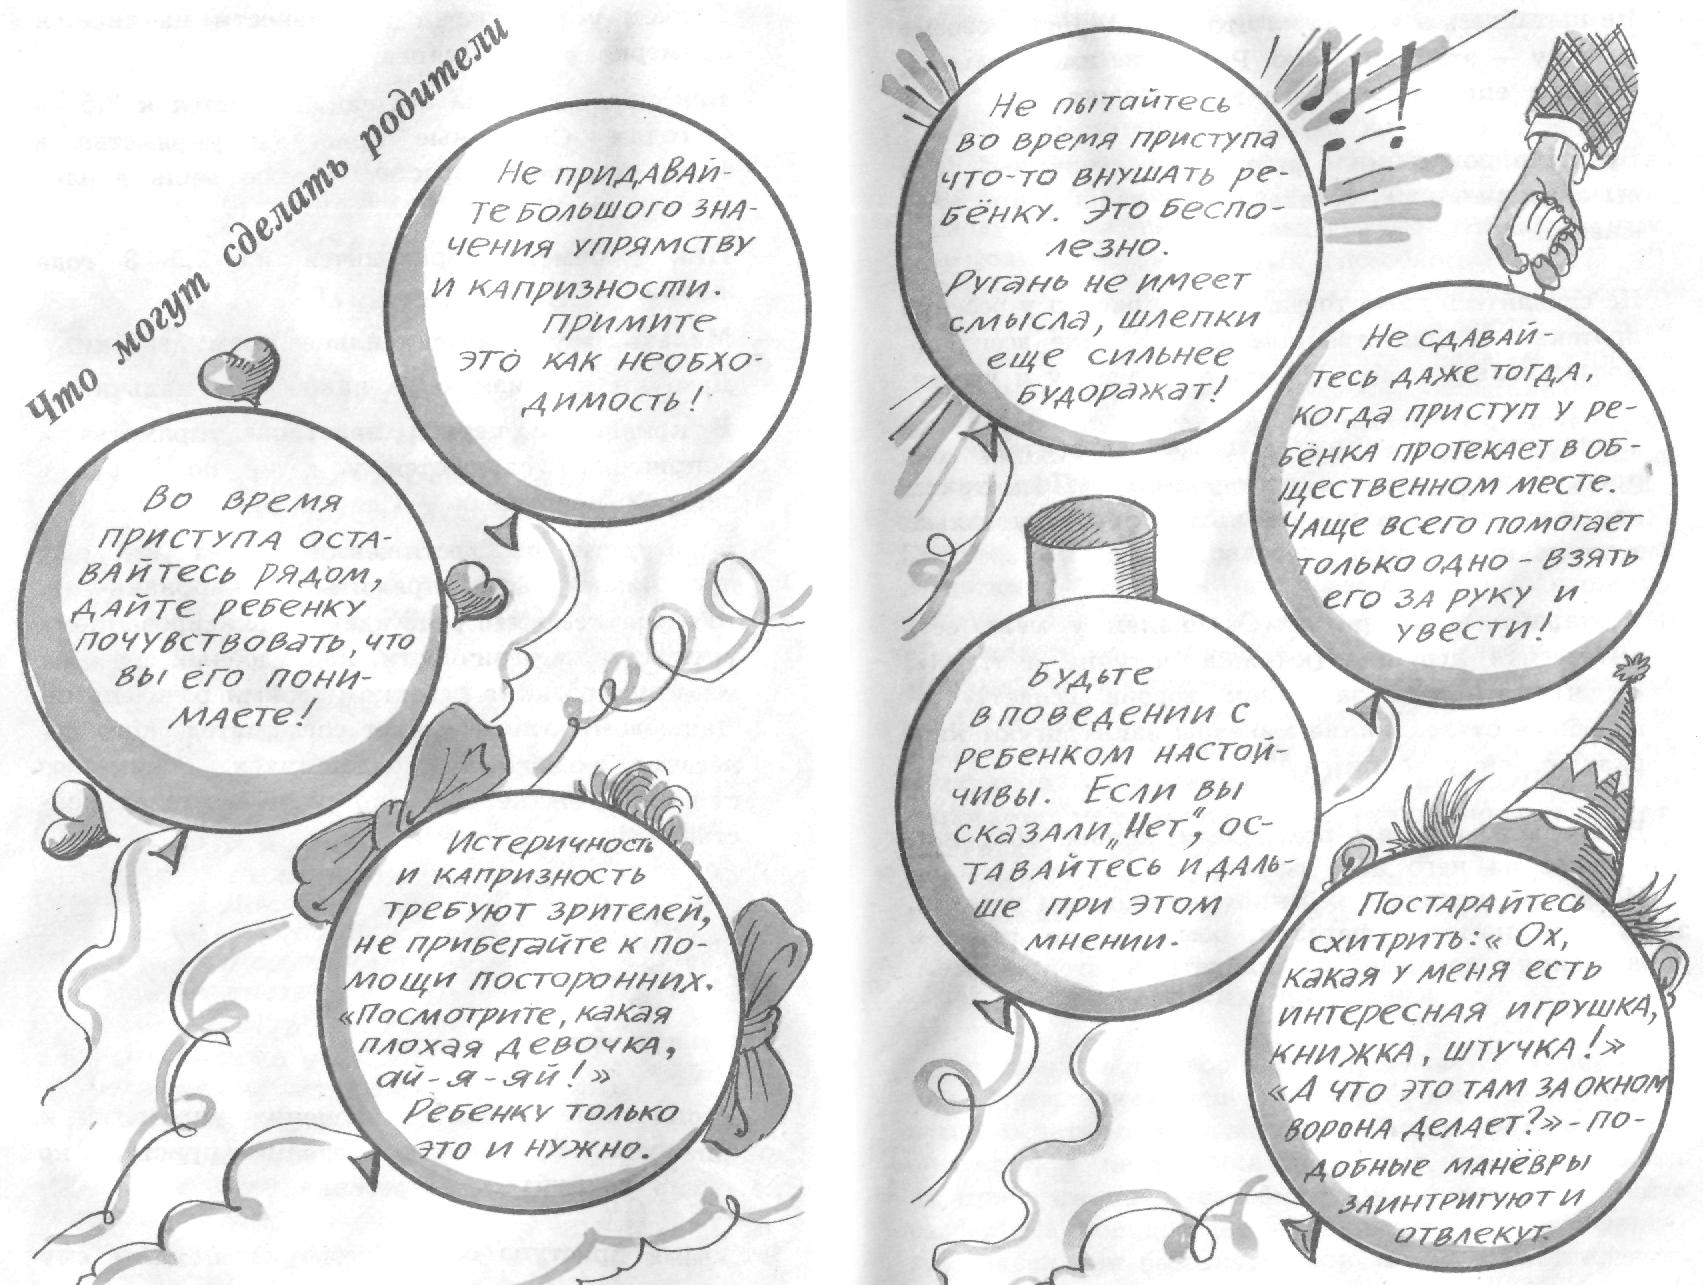 Что могут сделать родители
Не придавай-
те большого зна-
чения упрямству
и капризности.
Примите
это как необхо-
димость!
Во время
приступа оста-
вайтесь рядом,
дайте ребенку
почувствовать, что
вы его пони-
маете!
Истеричность
и капризность
требуют зрителей,
не прибегайте к по-
мощи посторонних.
«Посмотрите, какая
плохая девочка,
ай-я-яй!»
Ребенку только
это и нужно.
Не пытайтесь
во время приступа
что-то внушать ре-
бёнку. Это беспо-
лезно.
Ругань не имеет
смысла, шлепки
еще сильнее
будоражат!
Не сдавай-
тесь даже тогда,
когда приступ у ре-
бёнка протекает в об-
щественном месте.
Чаще всего помогает
только одно - взять
его за руку и
увести!
Будьте
в поведении с
ребенком настой-
чивы. Если вы
сказали „Нет“, ос-
тавайтесь и даль-
ше при этом
мнении.
Постарайтесь
схитрить: « Ох,
какая у меня есть
интересная игрушка,
книжка, штучка!»
«А что это там за окном
ворона делает?» - по-
добные манёвры
заинтригуют и
отвлекут.